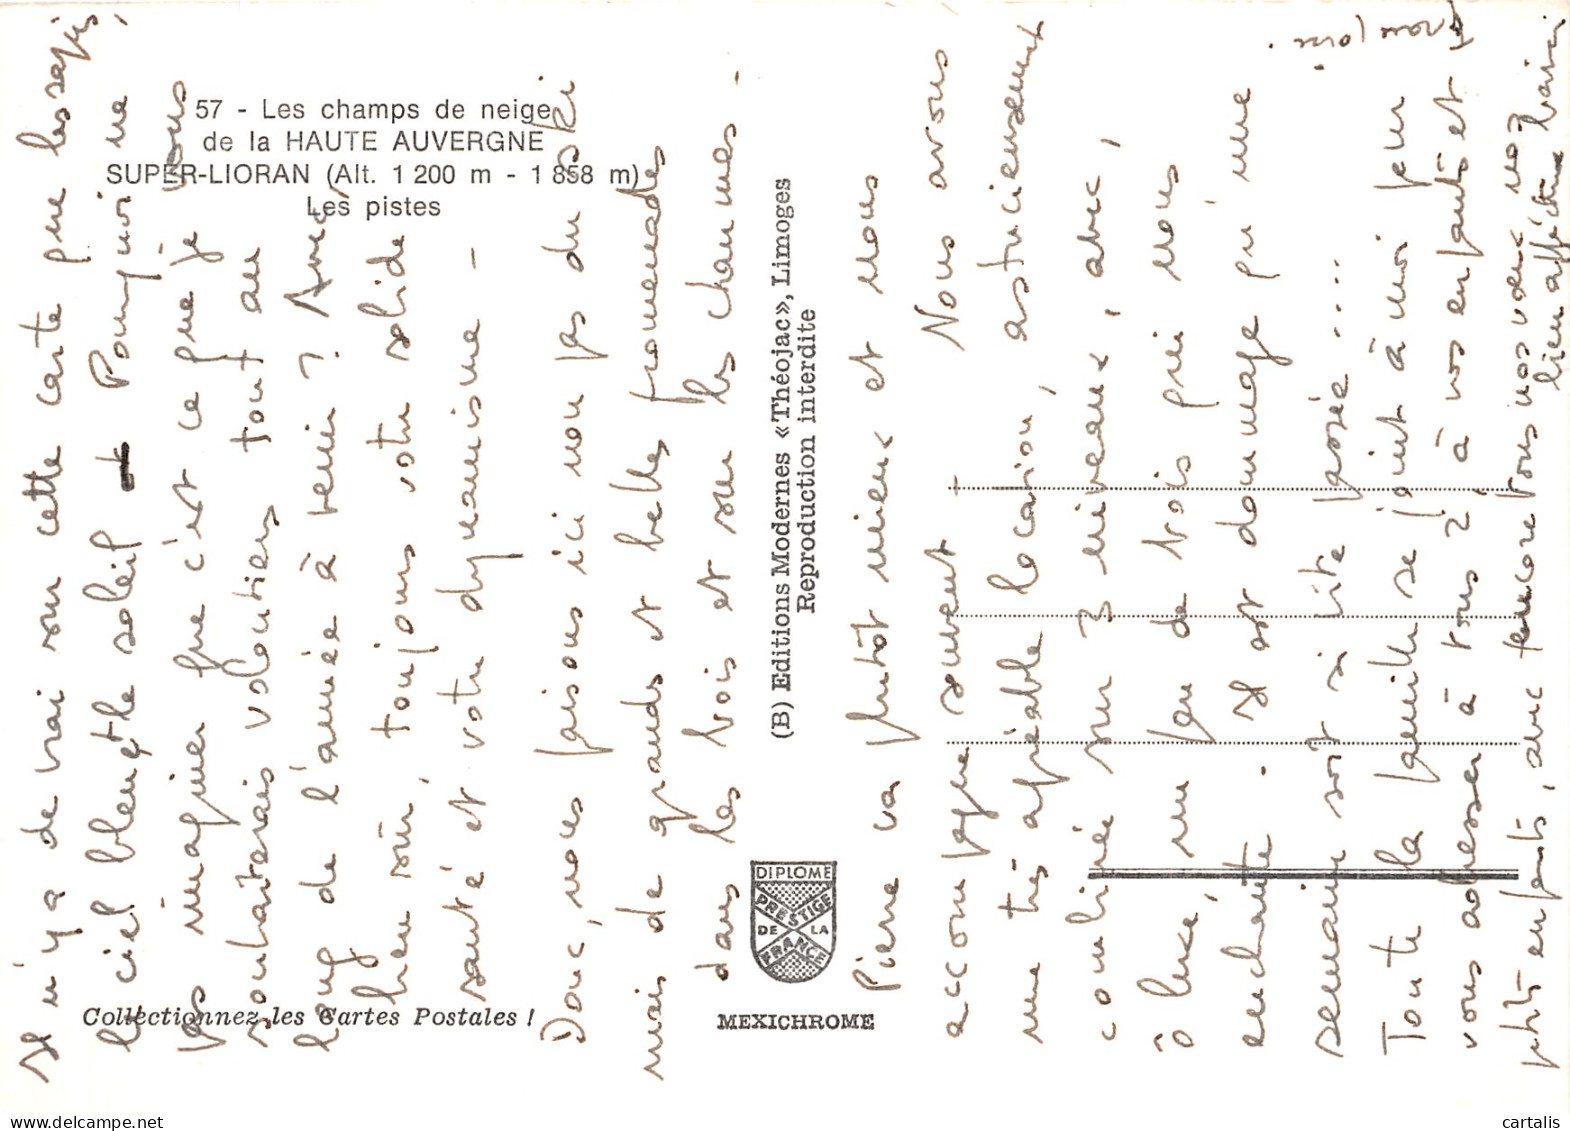 57 - Les champs de neige
de la HAUTE AUVERGNE
SUPER-LIORAN (Alt. 1 200 m - 1 858 m)
Les pistes
Il n'y a de vrai sur cette carte que les sapins,
le ciel bleu et le soleil. Pourquoi ne
pas imaginer que c'est ce que je vous
souhaiterais volontiers tout au
long de l'année à venir ? Avec
bien sûr, toujours votre solide
santé et votre dynamisme -
Donc, nous faisons ici non pas du ski
mais de grands et belles promenades
dans les bois et sur les chaumes -
Pierre va plutôt mieux et nous
accompagne souvent - Nous avons
une très agréable location, astucieusement
combinée sur 3 niveaux, avec,
ô luxe, un feu de bois qui nous
enchante. Il est dommage qu'une
semaine soit si vite passée ....
Toute la famille se joint à moi pour
vous adresser à tous 2, à vos enfants et
petits enfants, avec encore tous nos vœux nos
bien affectueux baisers
(B) Editions Modernes «Théojac», Limoges
Reproduction interdite
DIPLOME
PRESTIGE
DE LA
FRANCE
Collectionnez les Cartes Postales !
MEXICHROME
cartalis